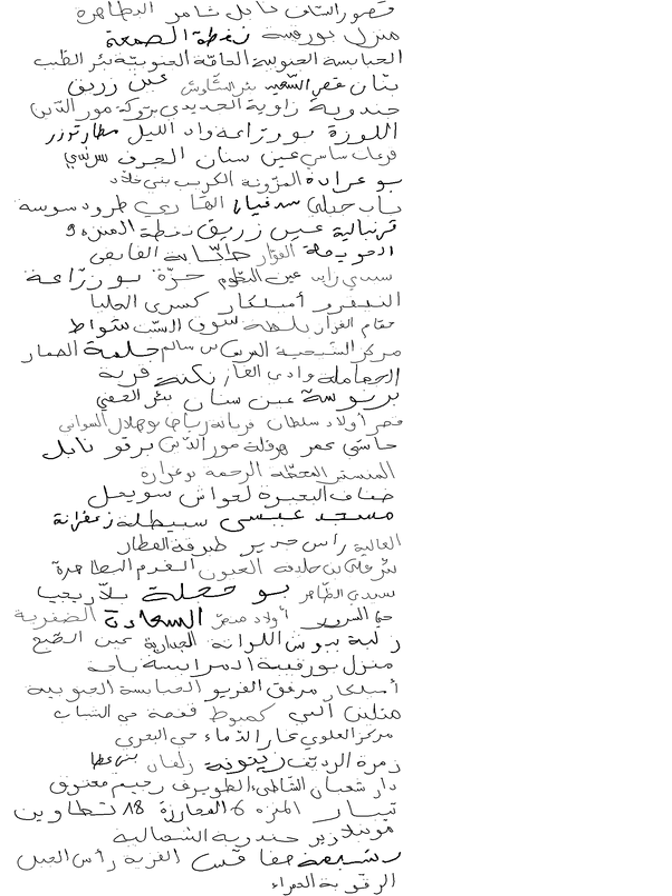 قصور الساف نابل شامر البطاهرة
منزل بورقيبة نفطة الصمعة
الحبايسة الجنوبية الحامّة الجنوبيّة بئر الطيب
بنّان قصر السّعيد بئر الشّاوش عين زريق
جندوبة زاوية الجديدي بركة مور الدّين
اللوزة بوزرّاعة واد الليل مطار توزر
فرعات ساسي عين سنان الجرف سرسي
بو عرادة المزّونة الكريب بني خلّاد
باب جبلي سدغيان القنّاري طرود سوسة
قرنبالية عين زريق نفطة المنزه 9
الحويجلة الفوّار القابضي
سيدي زايد عين البطوم حزّة بوزرّاعة
النيفرو أميلكار كسرى الحليا
حمّام الغزاز بلطة سوق السّبت شواط
مركز الشيحية العربي بن سالم جلمة الصمار
الجماملة وادي الغاز تكنة قرية
برنوسة عين سنان بئر الحفي
قصر أولاد سلطان فريانة رياض بوهلال السواني
حاسي عمر هرقلة مور الدّين برقو نابل
المنستير المحطّة الرحمة بوغرارة
ضفاف البحيرة لحواش سويحل
مسجد عيسى سبيطلة زعفرانة
العالية رأس جدير طبرقة القطار
بئر علي بن خليفة العيون الغدم البطاهرة
سيدي الظّاهر بو حجلة بلاّريجيا
حيّ السرور أولاد السعادة الضفرية
زلبة بيوش اللوانة الجبارية عين الضّبع
منزل بورقيبة الدرايسة باجة
أميلكار مرفق الفريو الحبايسة الجنوبية
منليل البي كمبوط قفصة حي الشباب
مركز العلوي بحار الدّماء حي البحري
زمرة الرديّف زيتونة زلفان بني عطا
دار شعبان الشاطئ الطويرف رجيم معتوق
تيبار المنزه 6 المحارزة 18 تطاوين
مونبليزير جندوبة الشمالية
رشيعة صفاقس القرية رأس الجبل
الرقوبة الحمراء